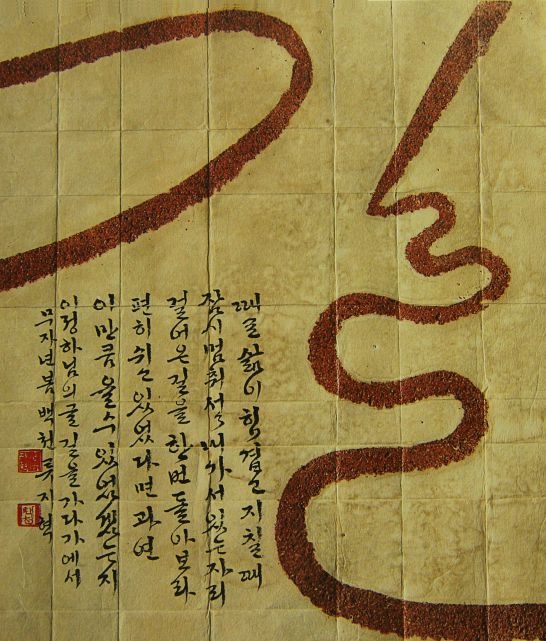 길
때로 삶이 힘겹고 지칠 때
잠시 멈춰 서서 내가 서 있는 자리
걸어온 길을 한번 돌아보라
편히 쉬고 있었다면 과연
이만큼 올 수 있었겠는지
이정하님의 글 길을 가다가에서
무자년 봄 백천 류지혁